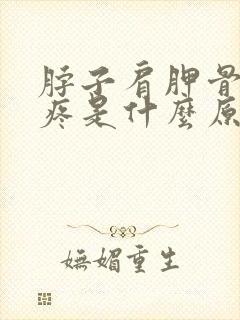 脖子肩胛骨
疼是什麼原
嫵媚重生